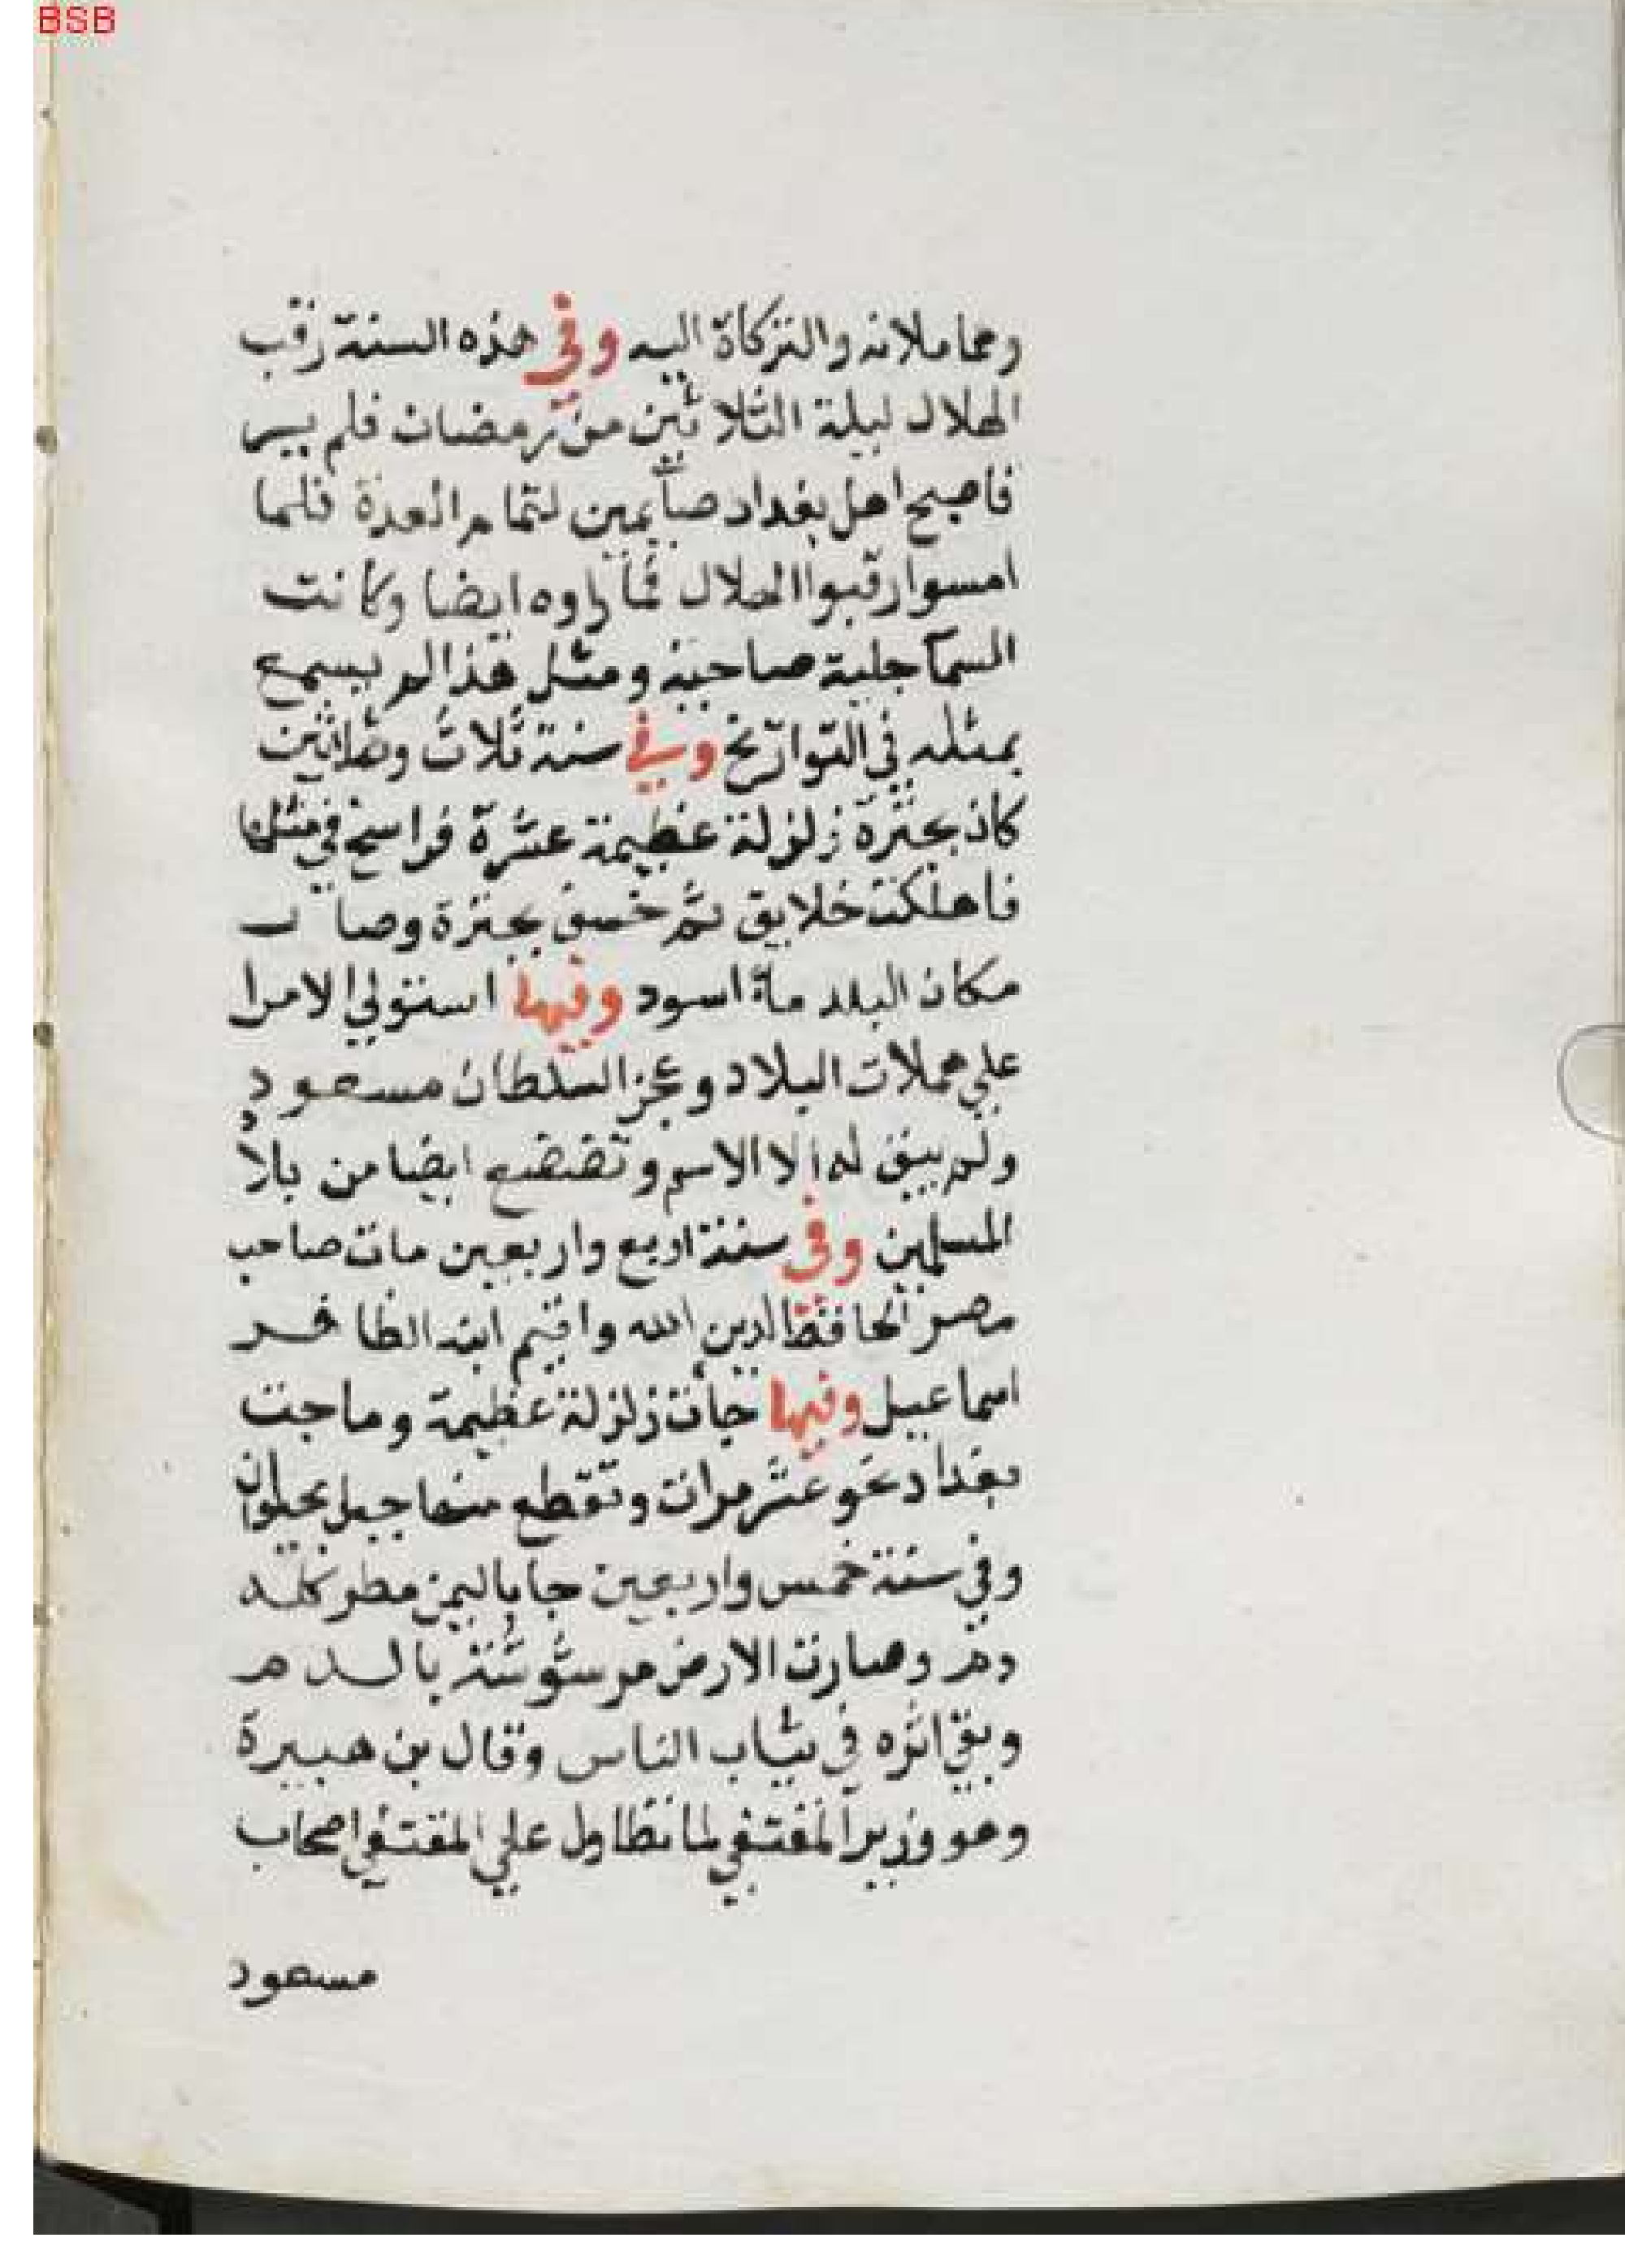 BSB
ومعاملاته والتركاة اليه وفي هذه السنة رقب
الهلال ليلة الثلاثين من رمضان فلم ير
فاصبح اهل بغداد صآيمين لتمام العدة فلما
امسوا رقبوا الهلال فما راوه ايضا وكانت
السمآ جلية صاحية ومثل هذا لم يسمع
بمثله في التواريخ وفي سنة ثلاث وثلاثين
كان بجنزة زلزلة عظيمة عشرة فراسخ في مثلها
فاهلكت خلايق ثم خسف بجنزة وصار
مكان البلد مآء اسود وفيها استولي الامرا
علي مجملات البلاد وعجز السلطان مسعود
ولم يبق له الا الاسم وتضعضع ايضا من بلاد
المسلمين وفي سنة اربع واربعين مات صاحب
مصر الحافظ لدين الله واقيم ابنه الظافر
اسماعيل وفيها جآت زلزلة عظيمة وماجت
بغداد نحو عشر مرات وتقطع منها جبل بحلوان
وفي سنة خمس واربعين جآ باليمن مطر كله
دم وصارت الارض مرشوشة بالدم
وبقي اثره في ثياب الناس وقال بن هبيرة
وهو وزير المقتفي لما تطاول علي المقتفي اصحاب
مسعود